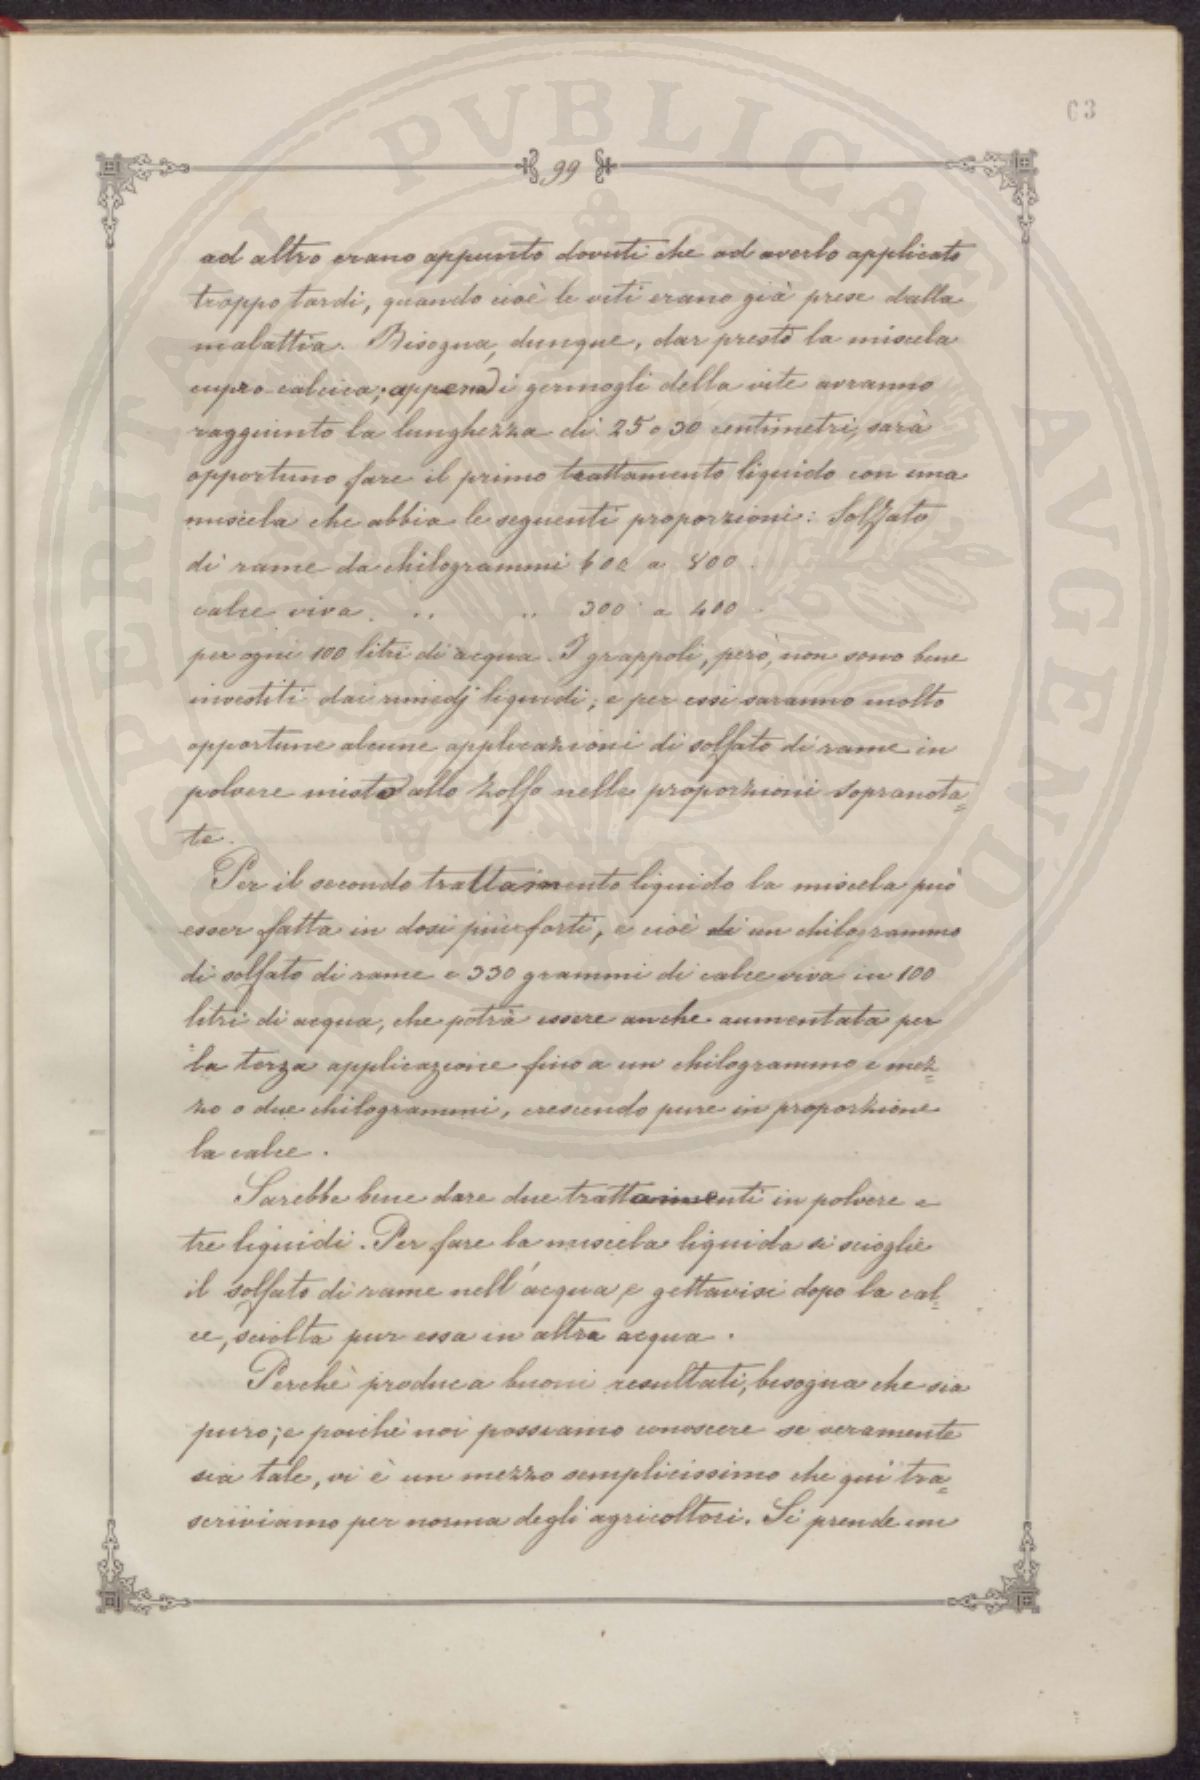 63
99
ad altro erano appunto dovuti che ad averlo applicato
troppo tardi, quando cioè le viti erano già prese dalla
malattia. Bisogna, dunque, dar presto la miscela
cupro-calcica; appena i germogli della vite avranno
raggiunto la lunghezza di 25 o 30 centimetri, sarà
opportuno fare il primo trattamento liquido con una
miscela che abbia le seguenti proporzioni: Solfato
di rame da chilogrammi 600 a 800.
calce viva. " " 300 a 400.
per ogni 100 litri di acqua. I grappoli, però, non sono bene
investiti dai rimedj liquidi; e per essi saranno molto
opportune alcune applicazioni di solfato di rame in
polvere misto allo zolfo nelle proporzioni sopranota=
te.
Per il secondo trattamento liquido la miscela può
esser fatta in dosi più forti, e cioè di un chilogrammo
di solfato di rame e 330 grammi di calce viva in 100
litri di acqua, che potrà essere anche aumentata per
la terza applicazione fino a un chilogrammo e mez=
zo o due chilogrammi, crescendo pure in proporzione
la calce.
Sarebbe bene dare due trattamenti in polvere e
tre liquidi. Per fare la miscela liquida si scioglie
il solfato di rame nell'acqua, e gettavisi dopo la cal=
ce, sciolta pur essa in altra acqua.
Perchè produca buoni resultati, bisogna che sia
puro; e poichè noi possiamo conoscere se veramente
sia tale, vi è un mezzo semplicissimo che qui tra=
scriviamo per norma degli agricoltori. Si prende un
PERITAI PVBLICAE AVGENDAE